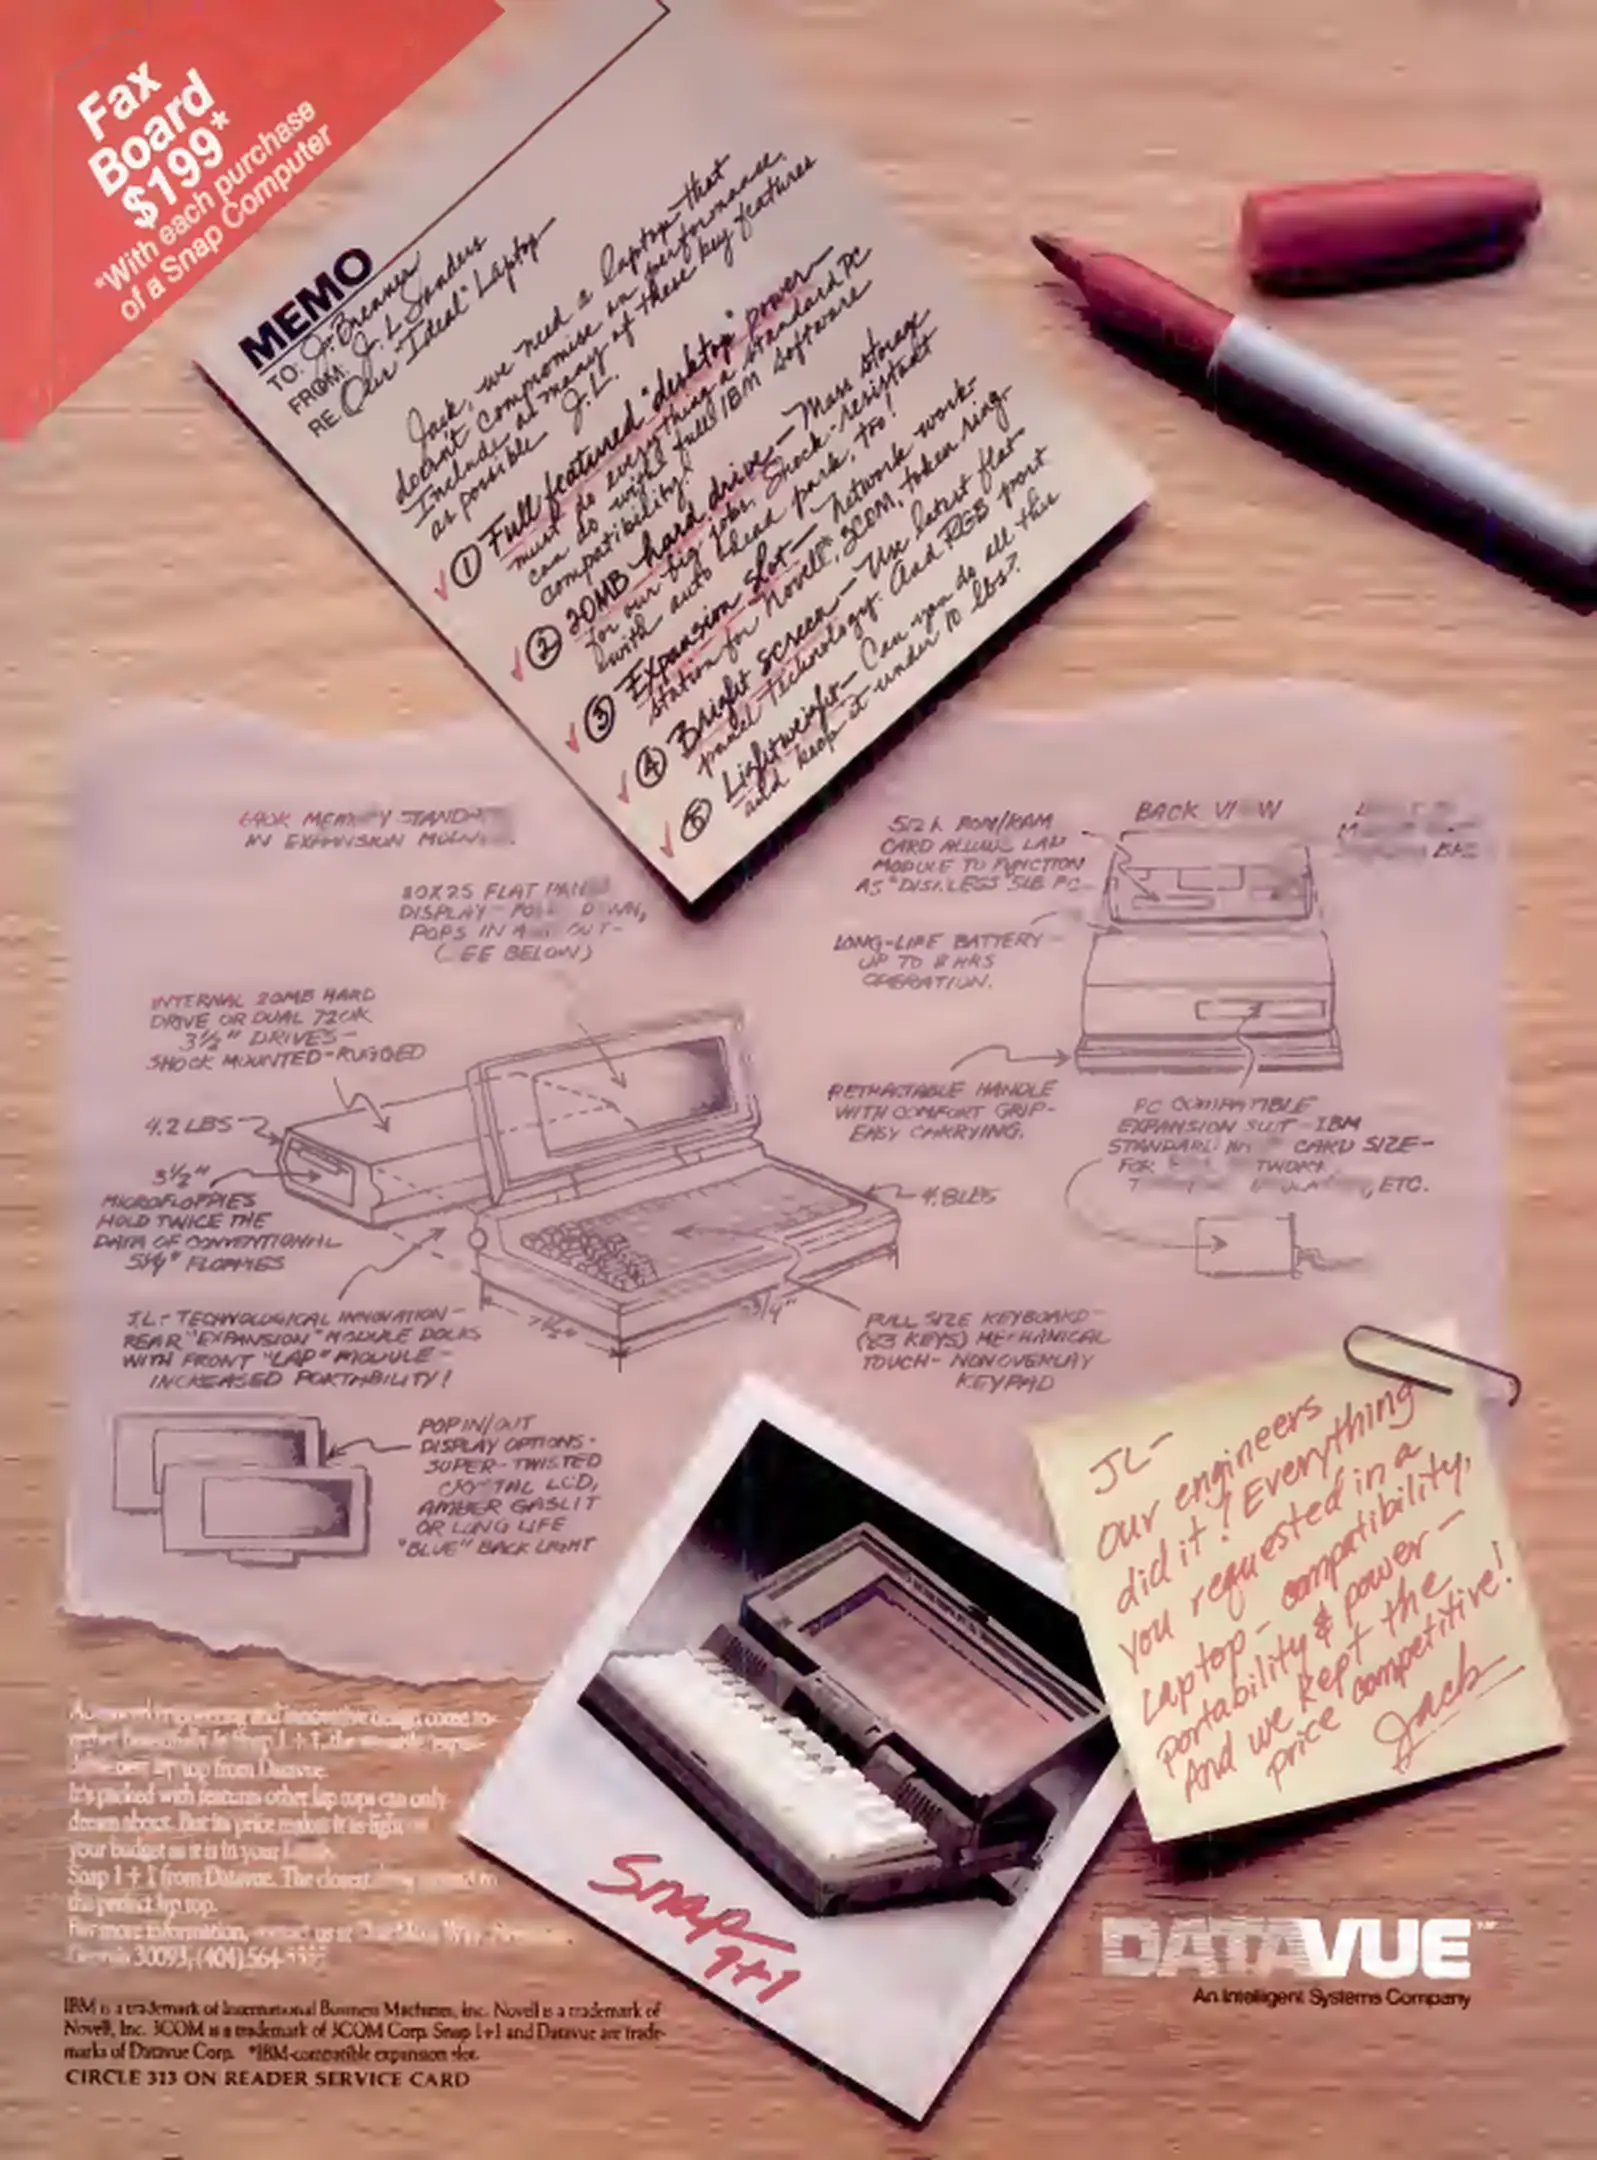 Fax
Board
$199*
*With each purchase
of a Snap Computer
MEMO
TO: J. Breaner
FROM: J. L Sanders
RE Our "Ideal" Laptop
Jack, we need a laptop that
doesn't compromise on performance.
Include as many of these key features
as possible J.L.
① Full featured "desktop" power—
must do everything a standard PC
can do with full IBM software
compatibility!
② 20MB hard drive— Mass storage
for our big jobs. Shock-resistant
with auto head park, too!
③ Expansion slot— network work-
station for Novell®, 3COM, token ring.
④ Bright screen— Use latest flat
panel technology. And RGB port
⑤ Lightweight— Can you do all this
and keep it under 10 lbs?
640K MEMORY STANDARD
IN EXPANSION
80X25 FLAT PANEL
DISPLAY- DOWN,
POPS IN AND OUT-
(SEE BELOW)
INTERNAL 20MB HARD
DRIVE OR DUAL 720K
3½" DRIVES-
SHOCK MOUNTED-RUGGED
4.2 LBS
3½"
MICROFLOPPIES
HOLD TWICE THE
DATA OF CONVENTIONAL
5¼" FLOPPIES
J.L.- TECHNOLOGICAL INNOVATION-
REAR "EXPANSION" MODULE DOCKS
WITH FRONT "LAP" MODULE-
INCREASED PORTABILITY!
POP IN/OUT
DISPLAY OPTIONS-
SUPER-TWISTED
CRYSTAL LCD,
AMBER GASLIT
OR LONG LIFE
"BLUE" BACK LIGHT
4.8 LBS
FULL SIZE KEYBOARD-
(83 KEYS) MECHANICAL
TOUCH- NONOVERLAY
KEYPAD
512K ROM/RAM
CARD ALLOWS LAP
MODULE TO FUNCTION
AS "DISKLESS" SUB PC-
BACK VIEW
LONG-LIFE BATTERY-
UP TO HRS
OPERATION.
RETRACTABLE HANDLE
WITH COMFORT GRIP-
EASY CARRYING.
PC COMPATIBLE
EXPANSION SLOT-IBM
STANDARD CARD SIZE-
FOR
ETC.
JL-
our engineers
did it! Everything
you requested in a
laptop- compatibility,
portability & power-
And we kept the
price competitive!
Jack
Snap
1+1
Advanced engineering and innovative design come to-
gether beautifully in Snap 1+1, the
lap top from Datavue.
It's packed with features other lap tops can only
dream about. But its price makes it as light on
your budget as it is in your hands.
Snap 1+1 from Datavue. The closest
the perfect lap top.
For more information, contact us at
Georgia 30093, (404) 564-
DATAVUE™
An Intelligent Systems Company
IBM is a trademark of International Business Machines, Inc. Novell is a trademark of
Novell, Inc. 3COM is a trademark of 3COM Corp. Snap 1+1 and Datavue are trade-
marks of Datavue Corp. *IBM-compatible expansion slot.
CIRCLE 313 ON READER SERVICE CARD